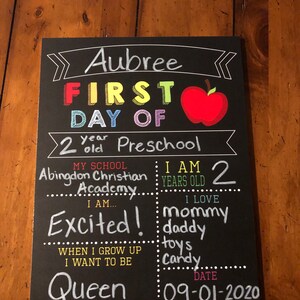 Aubree
FIRST
DAY OF
2 year old Preschool
MY SCHOOL
Abingdon Christian
Academy
I AM
YEARS OLD 2
I AM...
Excited!
I LOVE
mommy
daddy
toys
candy
WHEN I GROW UP
I WANT TO BE
Queen
DATE
09-01-2020